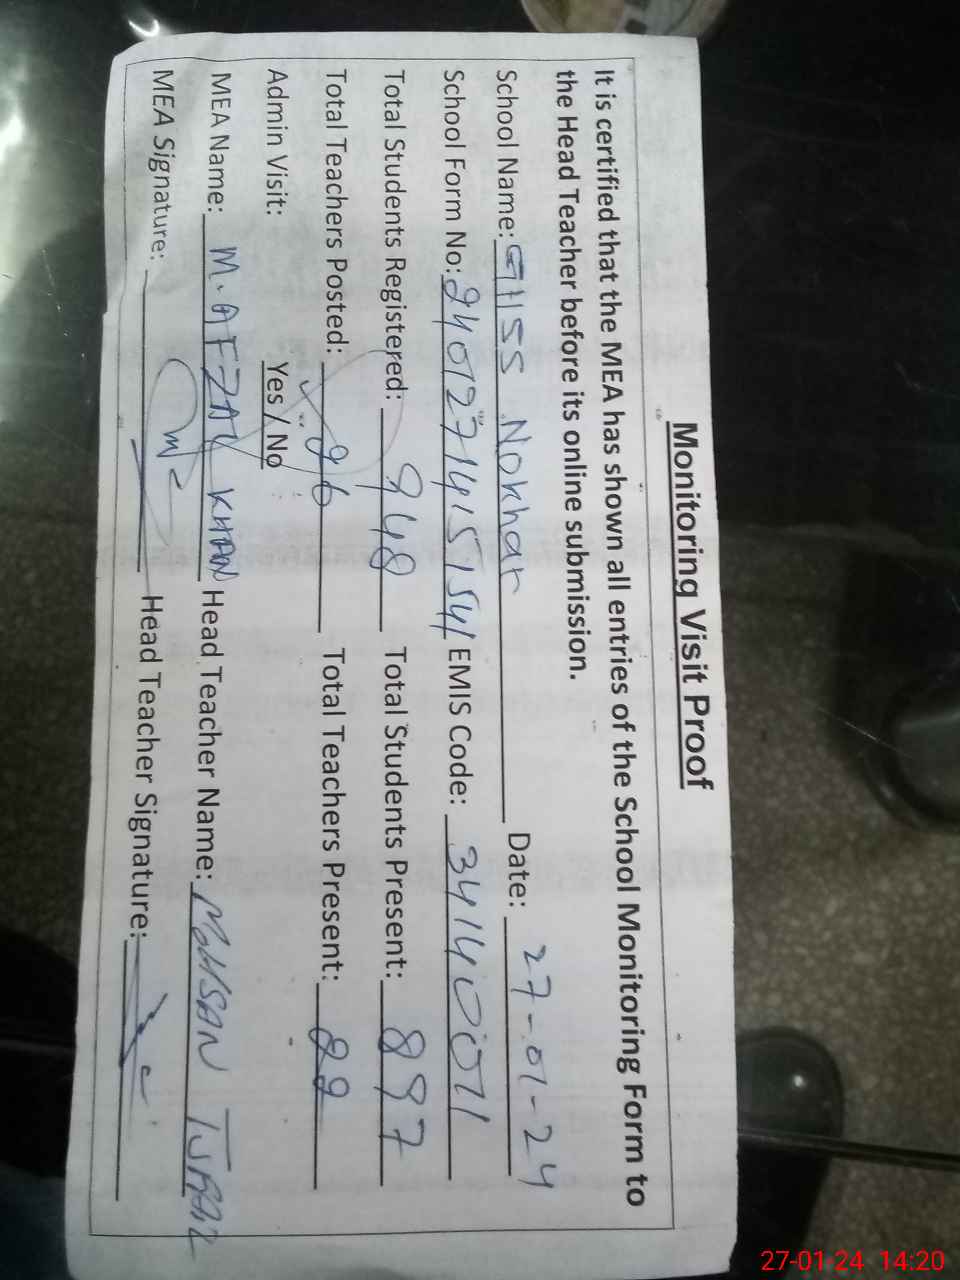 Monitoring Visit Proof
It is certified that the MEA has shown all entries of the School Monitoring Form to
the Head Teacher before its online submission.
School Name: GHSS Nokhar Date: 27-01-24
School Form No: EMIS Code: 34140071
Total Students Registered: 948 Total Students Present: 897
Total Teachers Posted: 26 Total Teachers Present: 22
Admin Visit: Yes / No
MEA Name: M. AFZAL KHAN Head Teacher Name: MOHSAN
MEA Signature: Head Teacher Signature:
27-01-24 14:20